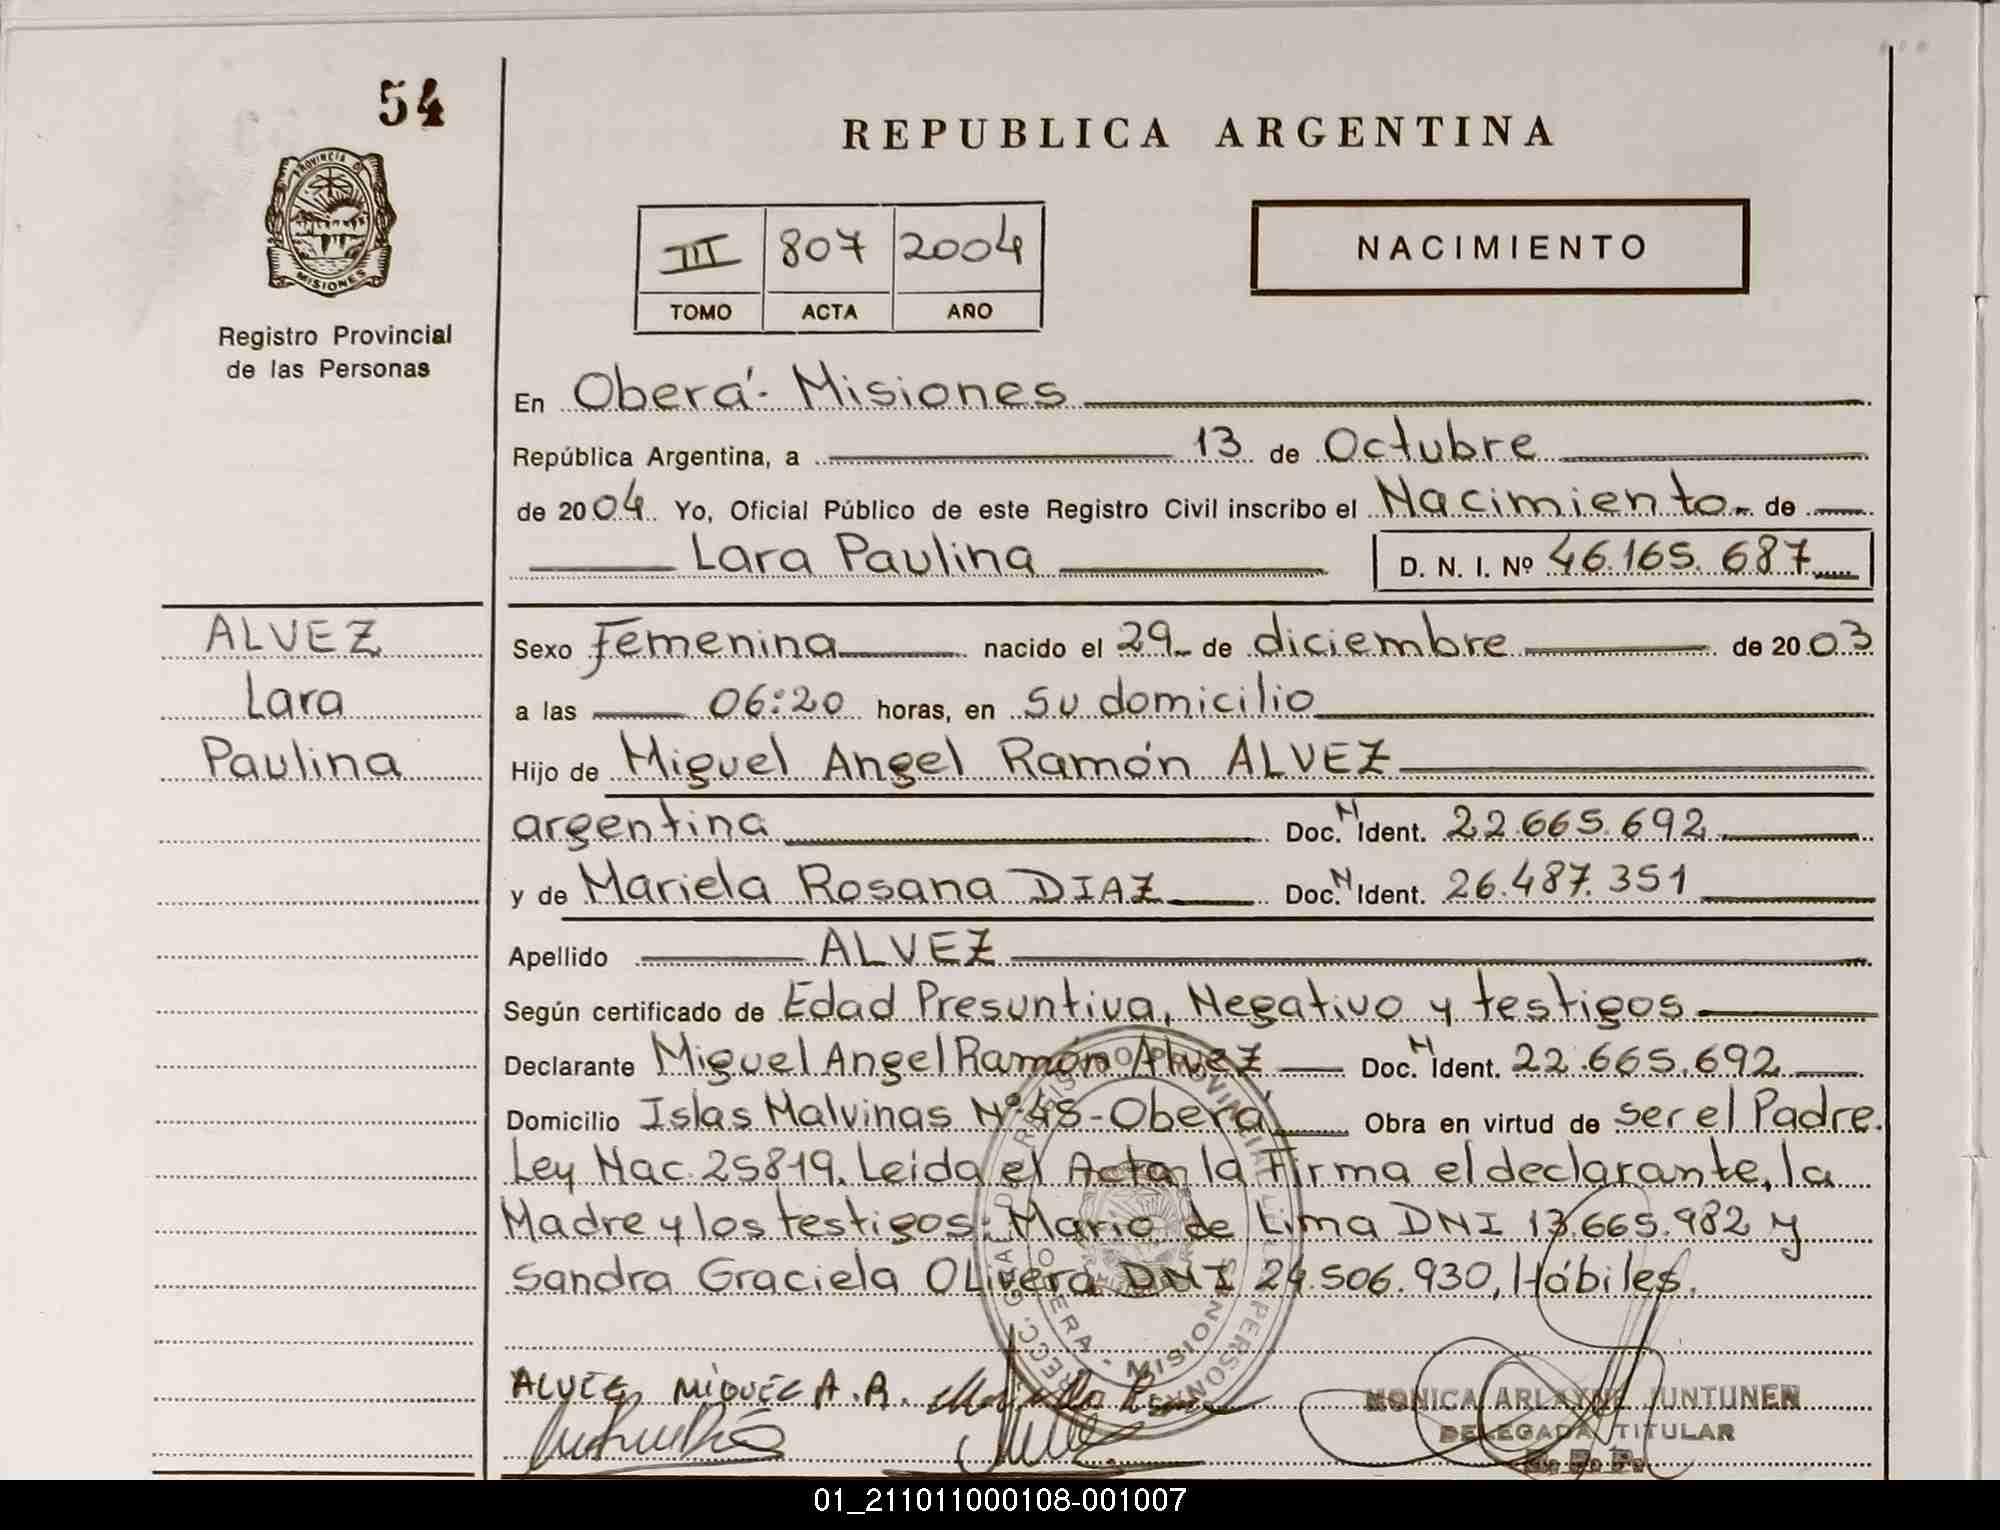 54
PROVINCIA D
MISIONES
Registro Provincial
de las Personas
REPUBLICA ARGENTINA
III 807 2004
TOMO ACTA AÑO
NACIMIENTO
En Oberá - Misiones
República Argentina, a 13 de Octubre
de 2004 Yo, Oficial Público de este Registro Civil inscribo el Nacimiento de
Lara Paulina D. N. I. Nº 46.165.687
ALVEZ
Lara
Paulina
Sexo Femenina nacido el 29 de diciembre de 2003
a las 06:20 horas, en su domicilio
Hijo de Miguel Angel Ramón ALVEZ
argentina Doc. N Ident. 22.665.692
y de Mariela Rosana DIAZ Doc. N Ident. 26.487.351
Apellido ALVEZ
Según certificado de Edad Presuntiva, Negativo y testigos
Declarante Miguel Angel Ramón Alvez Doc. N Ident. 22.665.692
Domicilio Islas Malvinas Nº 45 - Oberá Obra en virtud de ser el Padre.
Ley Nac. 25819. Leida el Acta, la Firma el declarante, la
Madre y los testigos: Mario de Lima DNI 13.665.982 y
Sandra Graciela OLivera DNI 24.506.930, Hábiles.
ALVEZ MIGUEL A. R.
MONICA ARLAYNE JUNTUNEN
DELEGADA TITULAR
01_211011000108-001007